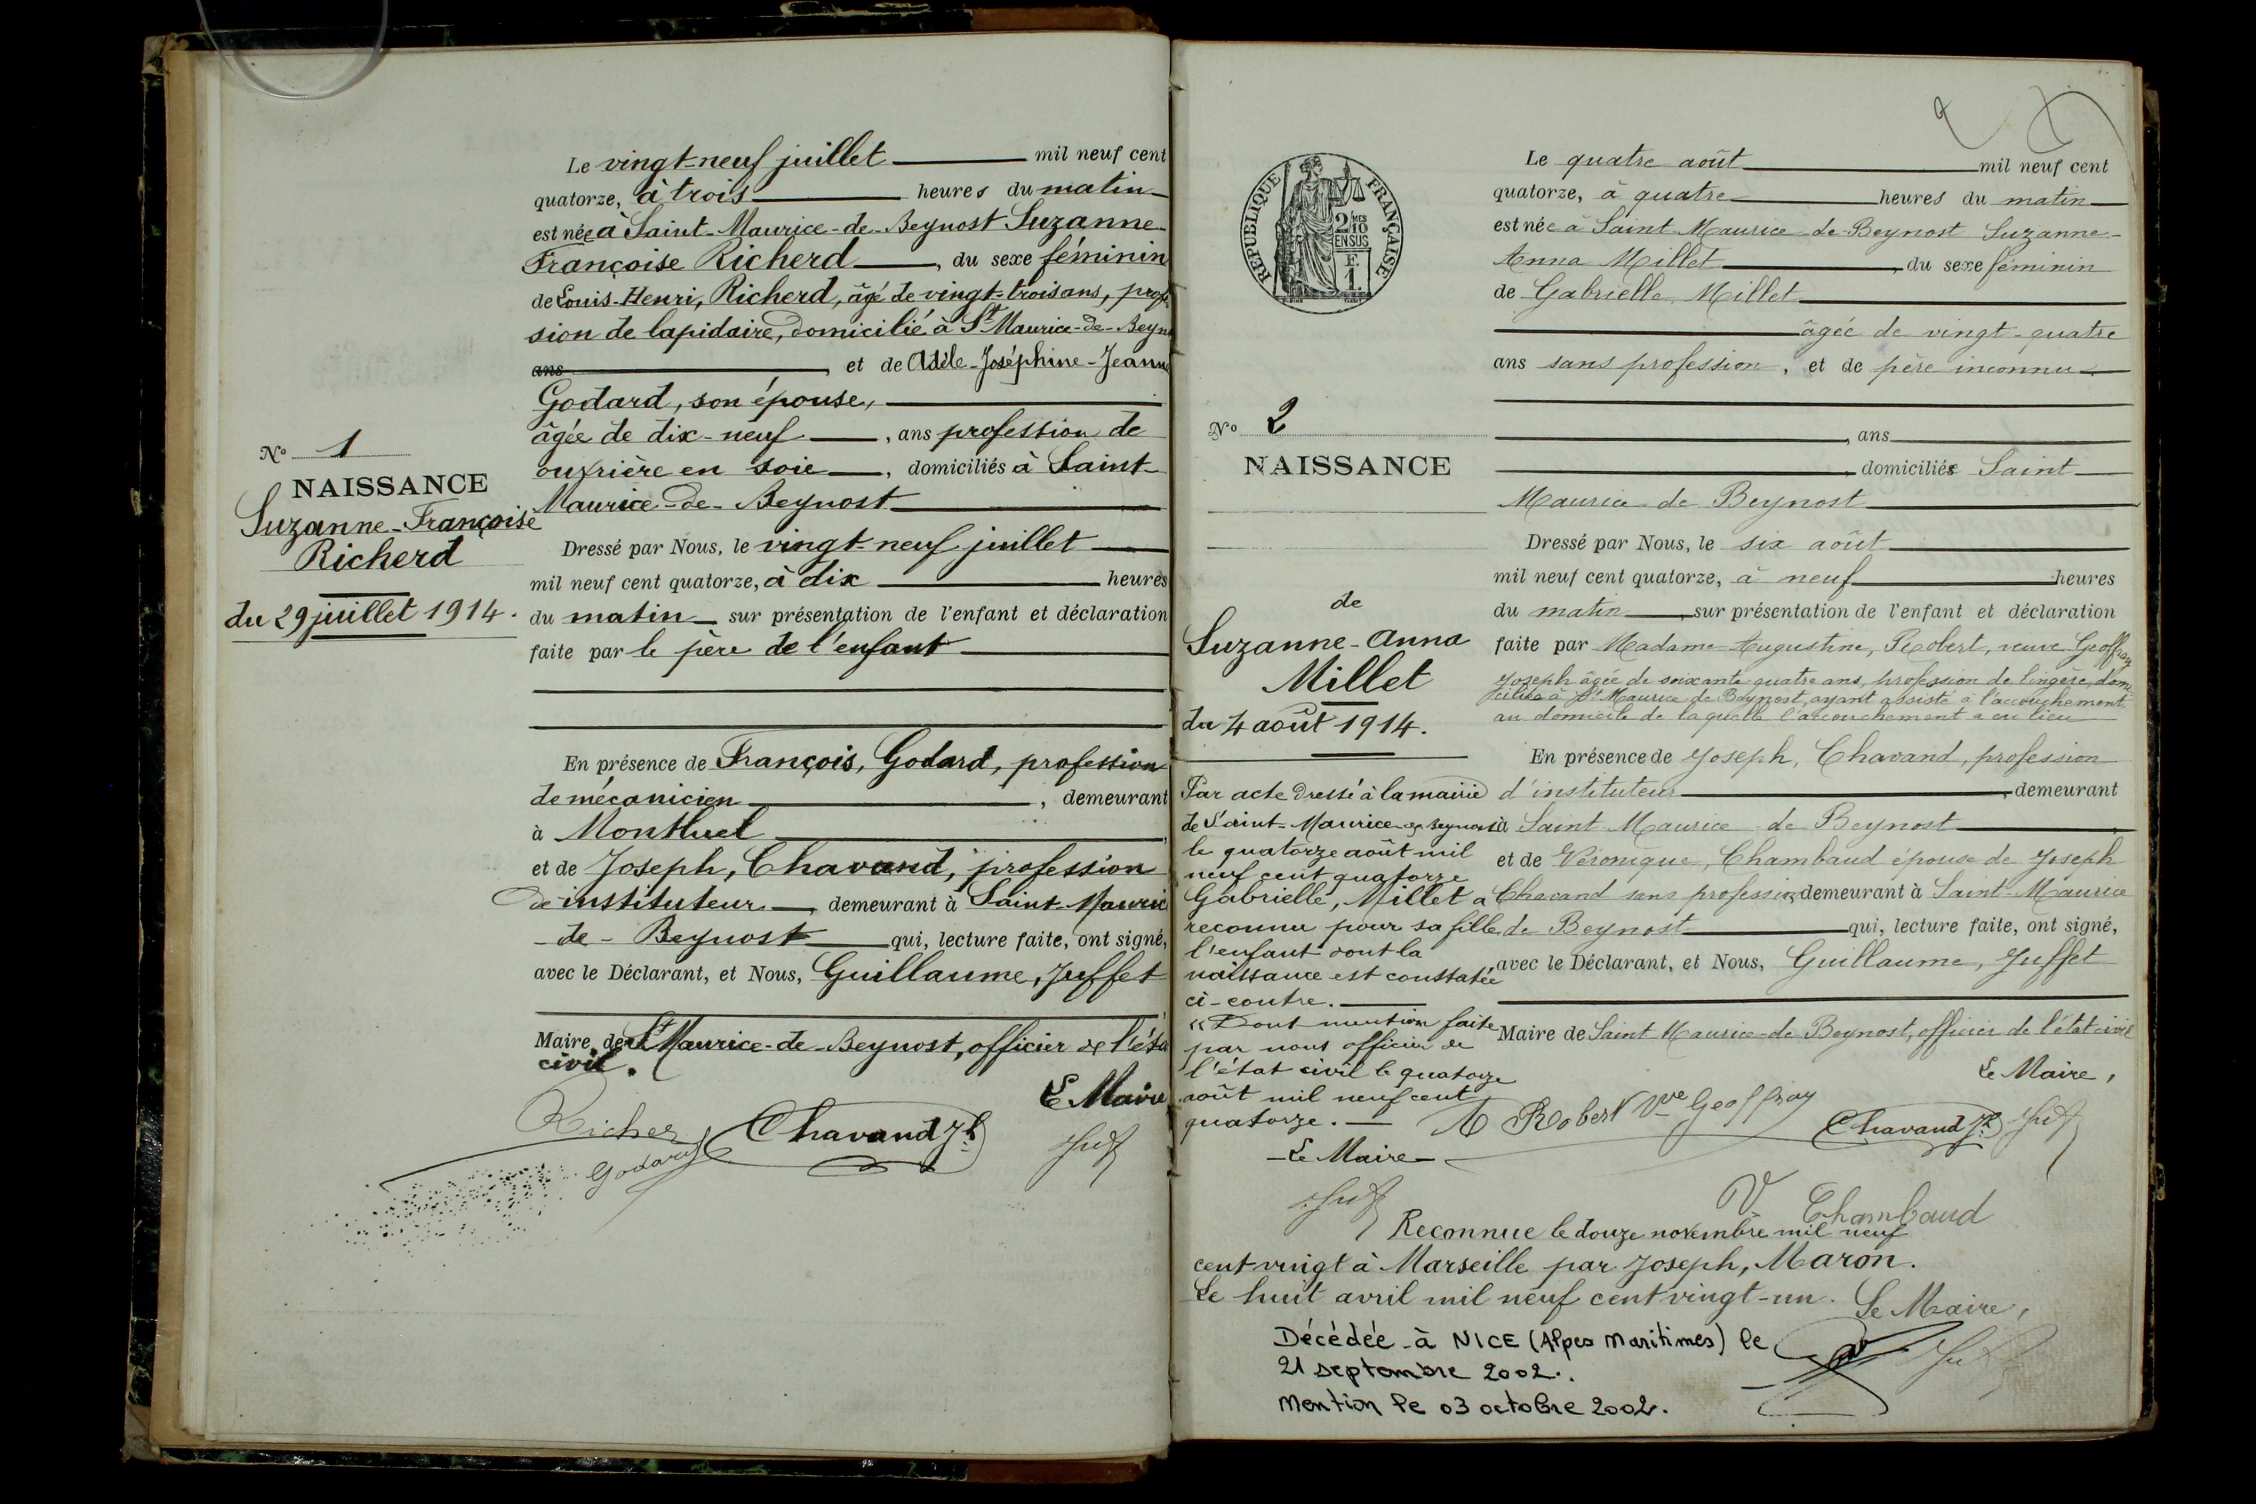 Le vingt-neuf juillet mil neuf cent
quatorze, à trois heures du matin
est née à Saint-Maurice-de-Beynost Suzanne-
Françoise Richerd, du sexe féminin
de Louis-Henri, Richerd, âgé de vingt-trois ans, profes
sion de lapidaire, domicilié à St Maurice-de-Beyn
ans, et de Adèle-Joséphine-Jeanne
Godard, son épouse,
âgée de dix-neuf, ans profession de
ouvrière en soie, domiciliés à Saint-
Maurice-de-Beynost
Nº 1
NAISSANCE
Suzanne-Françoise
Richerd
du 29 juillet 1914.
Dressé par Nous, le vingt-neuf juillet
mil neuf cent quatorze, à dix heures
du matin sur présentation de l'enfant et déclaration
faite par le père de l'enfant
En présence de François, Godard, profession
de mécanicien, demeurant
à Montluel
et de Joseph, Chavand, profession
de instituteur, demeurant à Saint-Mauric
-de-Beynost qui, lecture faite, ont signé,
avec le Déclarant, et Nous, Guillaume, Juffet
Maire de St Maurice-de-Beynost, officier de l'éta
civil.
Le Maire
Richer
Godard
Chavand Jh
Juf
RÉPUBLIQUE FRANÇAISE
2/10
EN SUS
F.
1.
Le quatre août mil neuf cent
quatorze, à quatre heures du matin
est née à Saint Maurice de Beynost Suzanne-
Anna Millet, du sexe féminin
de Gabrielle Millet
âgée de vingt-quatre
ans sans profession, et de père inconnu
, ans
, domiciliée Saint-
Maurice de Beynost
Nº 2
NAISSANCE
de
Suzanne-Anna
Millet
du 4 août 1914.
Dressé par Nous, le six août
mil neuf cent quatorze, à neuf heures
du matin, sur présentation de l'enfant et déclaration
faite par Madame Augustine, Robert, veuve Geoffray
Joseph âgée de soixante quatre ans, profession de lingère, domi-
ciliée à St Maurice de Beynost, ayant assisté à l'accouchement
au domicile de laquelle l'accouchement a eu lieu
En présence de Joseph, Chavand, profession
d'instituteur, demeurant
à Saint Maurice de Beynost
et de Véronique, Chambaud épouse de Joseph
Chavand sans profession, demeurant à Saint-Maurice
de Beynost qui, lecture faite, ont signé,
avec le Déclarant, et Nous, Guillaume, Juffet
Maire de Saint Maurice-de Beynost, officier de l'état civil
Le Maire,
Par acte dressé à la mairie
de Saint-Maurice de Beynost
le quatorze août mil
neuf cent quatorze
Gabrielle, Millet a
reconnu pour sa fille
l'enfant dont la
naissance est constatée
ci-contre.
"Dont mention faite
par nous officier de
l'état civil le quatorze
août mil neuf cent
quatorze.
Le Maire
Juf
A Robert Vve Geoffray
Chavand Jh
Juf
V Chambaud
Reconnue le douze novembre mil neuf
cent vingt à Marseille par Joseph, Maron.
Le huit avril mil neuf cent vingt-un. Le Maire,
Décédée à NICE (Alpes Maritimes) le
21 septembre 2002.
Mention le 03 octobre 2002.